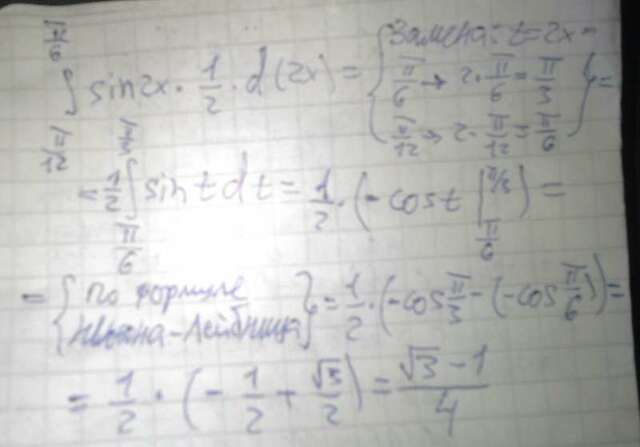 ∫_{π/12}^{π/6} sin2x · 1/2 · d(2x) = { Замена: t=2x
π/6 → 2 · π/6 = π/3
π/12 → 2 · π/12 = π/6 } =
= 1/2 ∫_{π/6}^{π/3} sin t dt = 1/2 · (-cos t |_{π/6}^{π/3}) =
= { По формуле Ньютона-Лейбница } = 1/2 · (-cos π/3 - (-cos π/6)) =
= 1/2 · (-1/2 + √3/2) = (√3 - 1)/4